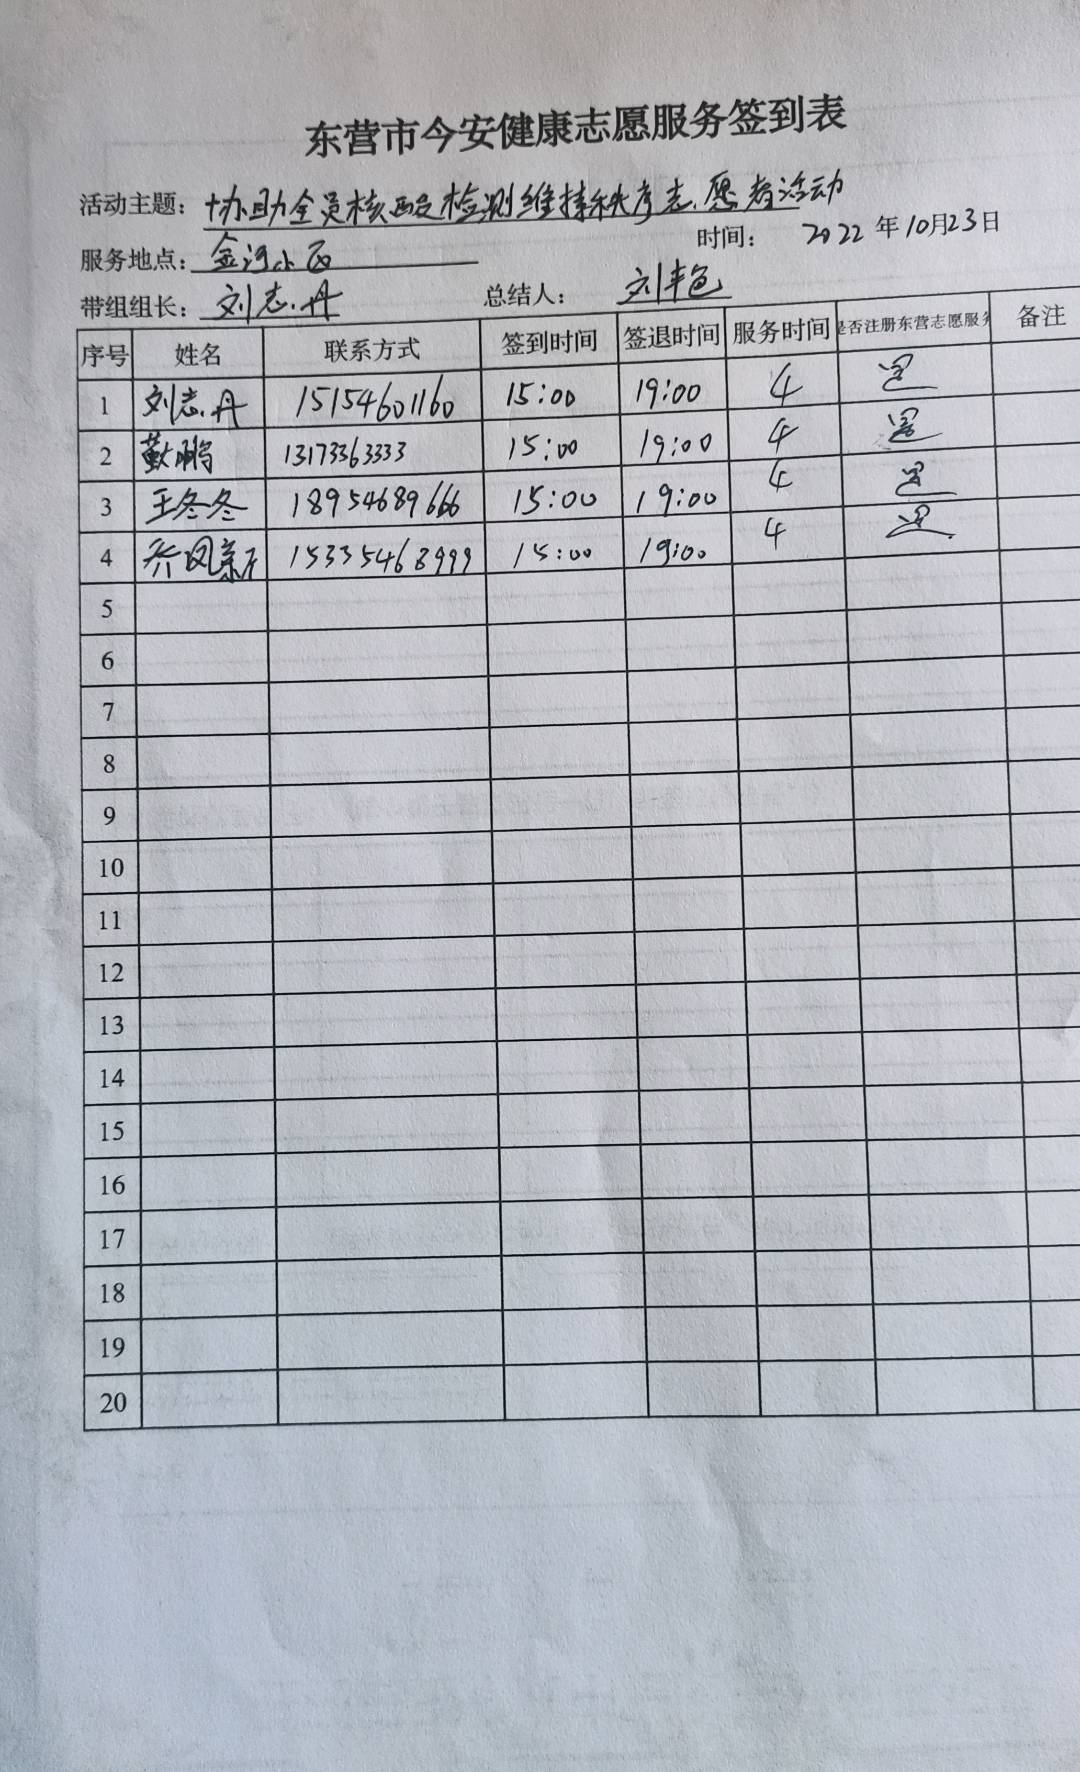 东营市今安健康志愿服务签到表
活动主题：协助全员核酸检测维持秩序志愿者活动
服务地点：金河小区 时间：2022年10月23日
带组组长：刘志丹 总结人：刘丰色
序号 姓名 联系方式 签到时间 签退时间 服务时间 是否注册东营志愿服务 备注
1 刘志丹 15154601160 15:00 19:00 4 是
2 鹏 13173363333 15:00 19:00 4 是
3 王冬冬 18954689666 15:00 19:00 4 是
4 乔凤新 15335468999 15:00 19:00 4 是
5
6
7
8
9
10
11
12
13
14
15
16
17
18
19
20